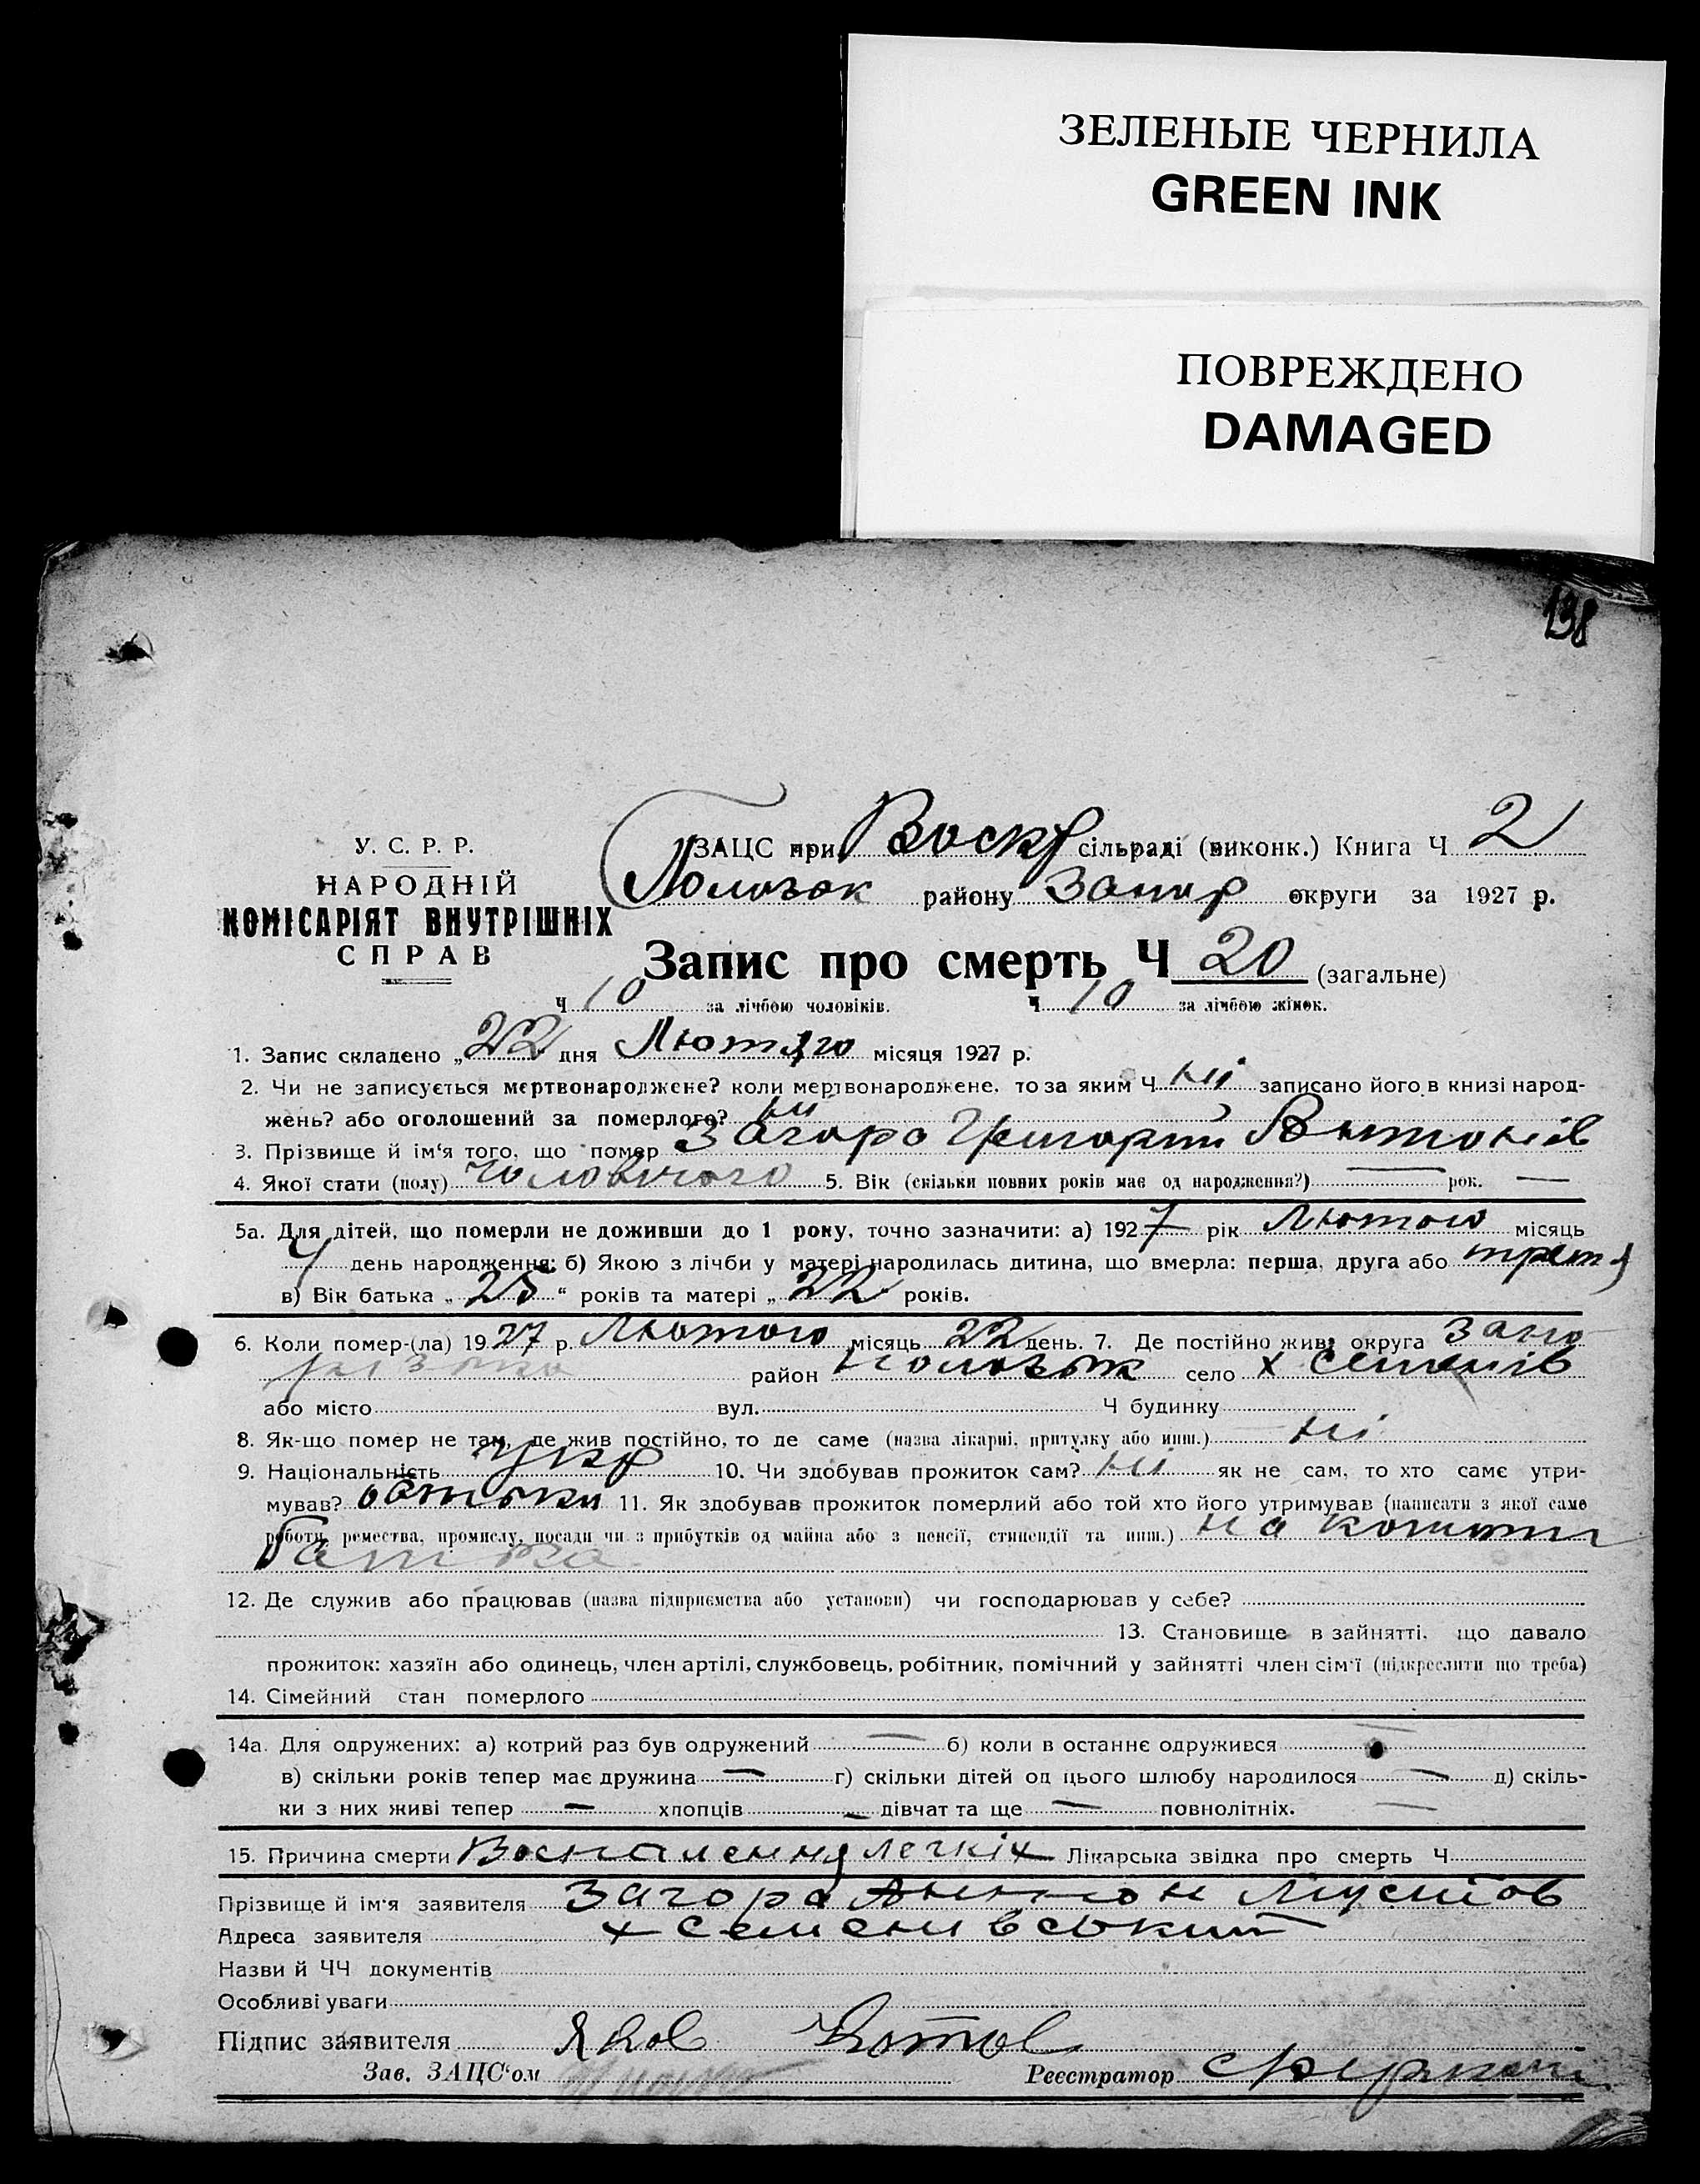 ЗЕЛЕНЫЕ ЧЕРНИЛА
GREEN INK
ПОВРЕЖДЕНО
DAMAGED
138
У. С. Р. Р.
НАРОДНІЙ
КОМІСАРІЯТ ВНУТРІШНІХ
СПРАВ
ЗАЦС при Воскр сільраді (виконк.) Книга Ч 2
району Запор округи за 1927 р.
Запис про смерть Ч 20 (загальне)
Ч 10 за лічбою чоловіків. Ч 10 за лічбою жінок.
1. Запис складено „22 дня Лютого місяця 1927 р.
2. Чи не записується мертвонароджене? коли мертвонароджене, то за яким Ч ні записано його в книзі народ-
жень? або оголошений за померлого? ні
3. Прізвище й ім'я того, що помер Загора Григорій Антонів
4. Якої стати (полу) чоловічого 5. Вік (скільки повних років має од народження?) — рок. —
5а. Для дітей, що померли не доживши до 1 року, точно зазначити: а) 1927 рік Лютого місяць
4 день народження; б) Якою з лічби у матері народилась дитина, що вмерла: перша, друга або третя
в) Вік батька „25“ років та матері „22“ років.
6. Коли помер-(ла) 1927 р. Лютого місяць 22 день. 7. Де постійно жив: округа Запо
різька район село х
або місто вул. Ч будинку
8. Як-що помер не там, де жив постійно, то де саме (назва лікарні, притулку або инш.) ні
9. Національність укр 10. Чи здобував прожиток сам? ні як не сам, то хто саме утри-
мував? 11. Як здобував прожиток померлий або той хто його утримував (написати з якої саме
роботи, ремества, промислу, посади чи з прибутків од майна або з пенсії, стипендії та инш.) на кошти
батька
12. Де служив або працював (назва підприємства або установи) чи господарював у себе?
13. Становище в зайнятті, що давало
прожиток: хазяїн або одинець, член артілі, службовець, робітник, помічний у зайнятті член сім'ї (підкреслити що треба)
14. Сімейний стан померлого
14а. Для одружених: а) котрий раз був одружений — б) коли в останнє одружився
в) скільки років тепер має дружина — г) скільки дітей од цього шлюбу народилося — д) скіль-
ки з них живі тепер — хлопців — дівчат та ще — повнолітніх. —
15. Причина смерти Воспалення легкіх Лікарська звідка про смерть Ч
Прізвище й ім'я заявителя Загора Антон
Адреса заявителя х Семенівський
Назви й ЧЧ документів
Особливі уваги
Підпис заявителя Яков
Зав. ЗАЦС'ом Реєстратор